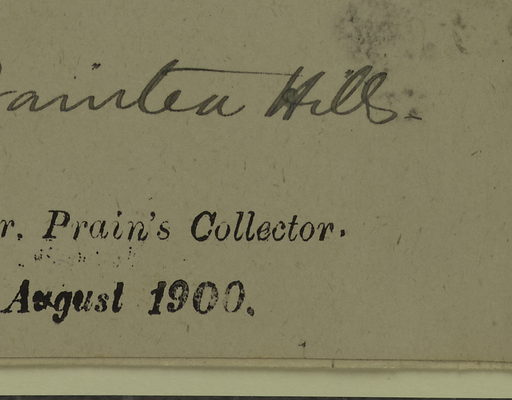 Jaintea Hills.
r. Prain's Collector.
August 1900.